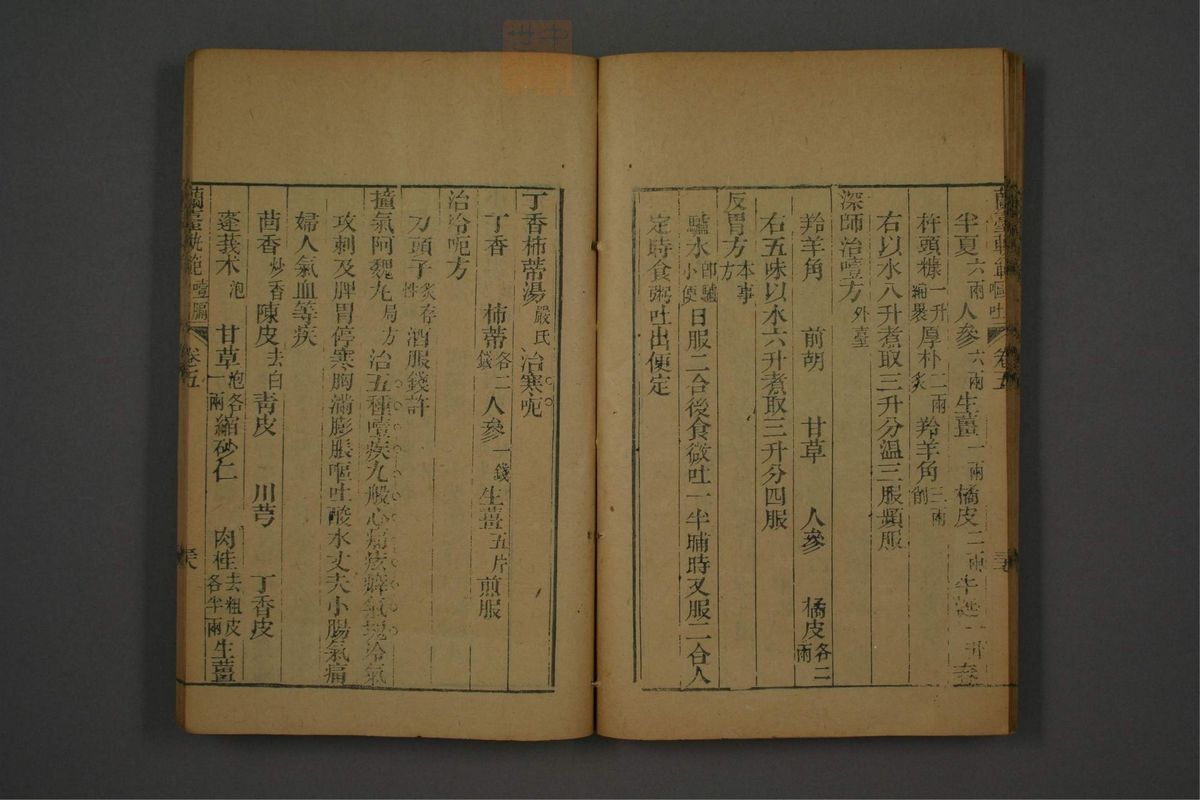 蘭臺軌範 嘔吐 卷五
半夏六兩 人參六兩 生薑一兩 橘皮二兩
杵頭糠一升綿裹 厚朴二兩炙 羚羊角三兩削
右以水八升煮取三升分溫三服頻服
深師治噎方外臺
羚羊角 前胡 甘草 人參 橘皮各二兩
右五味以水六升煮取三升分四服
反胃方本事方
驢水即驢小便 日服二合後食微吐一半晡時又服二合人
定時食粥吐出便定
丁香柿蒂湯嚴氏 治寒呃
丁香 柿蒂各二錢 人參一錢 生薑五片 煎服
治冷呃方
刀頭子炙存性 酒服錢許
撞氣阿魏丸局方 治五種噎疾九般心痛痃癖氣塊冷氣
攻刺及脾胃停寒胸滿膨脹嘔吐酸水丈夫小腸氣痛
婦人氣血等疾
茴香炒香 陳皮去白 青皮 川芎 丁香皮
蓬莪朮泡 甘草炮各一兩 縮砂仁 肉桂去粗皮各半兩 生薑
蘭臺軌範 噎膈 卷五